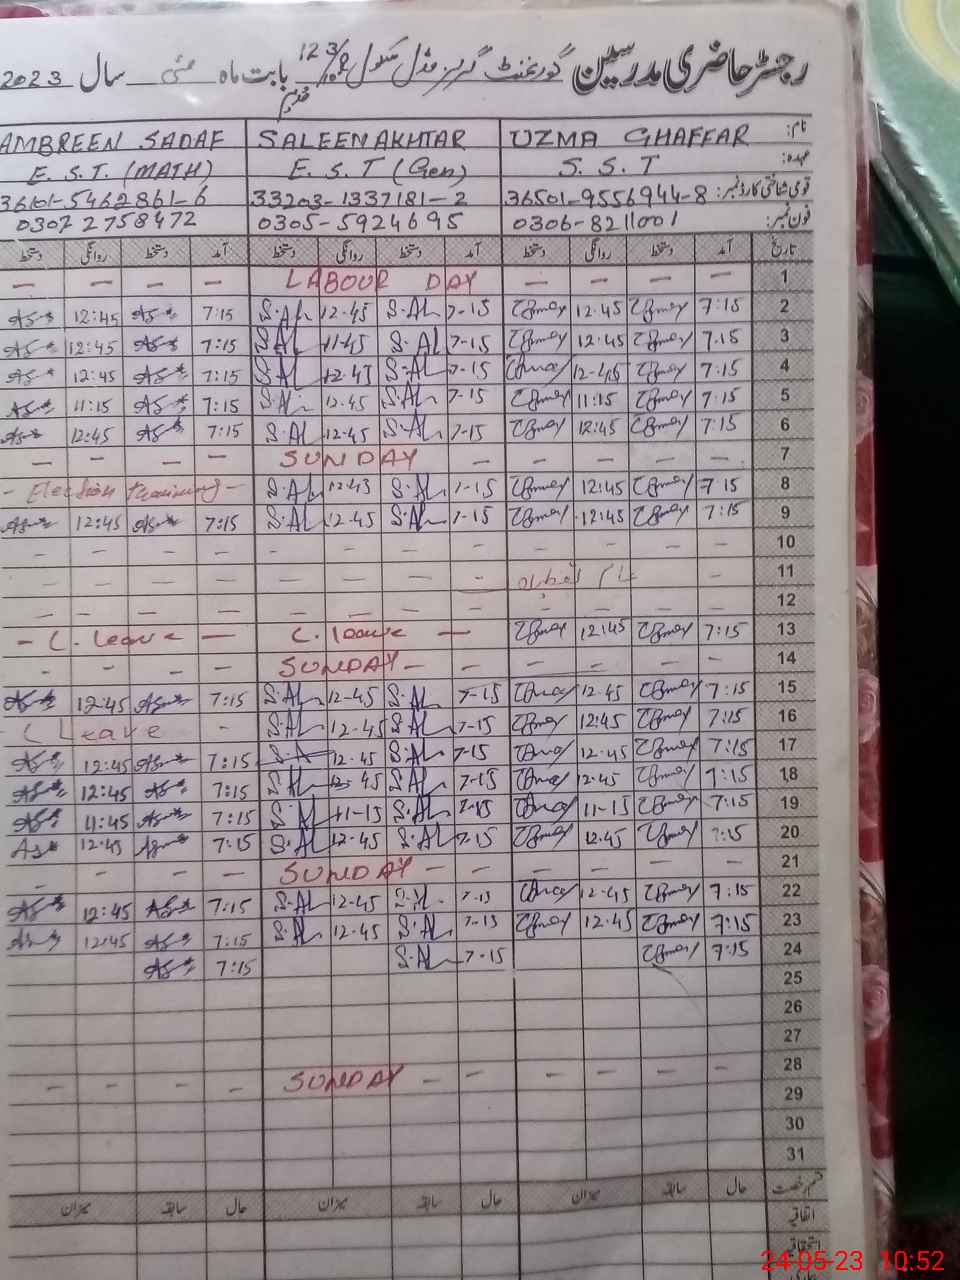 رجسٹر حاضری مدرسین گورنمنٹ گرلز مڈل سکول 123/ بابت ماہ مئی سال 2023
AMBREEN SADAF SALEEM AKHTAR UZMA GHAFFAR نام:
E. S. T. (MATH) E. S. T (Gen) S. S. T عہدہ:
36101-5462861-6 33203-1337181-2 36501-9556944-8 قومی شناختی کارڈ نمبر:
03072758472 0305-5924695 0306-8211001 فون نمبر:
دستخط روانگی دستخط آمد دستخط روانگی دستخط آمد دستخط روانگی دستخط آمد تاریخ
— — — — LABOUR DAY — — — — 1
12:45 7:15 S.AL 12-45 S.AL 7-15 12.45 7:15 2
12:45 7:15 S.AL 11-45 S.AL 7-15 12.45 7.15 3
12:45 7:15 S.AL 12.45 S.AL 7-15 12-45 7:15 4
11:15 7:15 S.AL 12.45 S.AL 7-15 11:15 7:15 5
12:45 7:15 S.AL 12-45 S.AL 7-15 12:45 7:15 6
— — — — SUNDAY — — — — — 7
- Election training - S.AL 12-45 S.AL 7-15 12:45 7 15 8
12:45 7:15 S.AL 12-45 S.AL 7-15 12:45 7:15 9
— — — — — — — — — — — — 10
— — — — — — — — عام — 11
— — — — — — — — — — — — 12
- C. leave — C. leave — 12:45 7:15 13
— — — — SUNDAY — — — — — — 14
12:45 7:15 S.AL 12-45 S.AL 7-15 12.45 7:15 15
- C Leave - S.AL 12-45 S.AL 7-15 12:45 7:15 16
12:45 7:15 12-45 S.AL 7-15 12-45 7:15 17
12:45 7:15 S.AL 45 S.AL 7-15 12:45 7:15 18
11:45 7:15 S.AL 11-15 S.AL 7-15 11-15 7:15 19
12:45 7:15 S.AL 12-45 S.AL 7-15 12.45 7:15 20
— — — — SUNDAY — — — — — — 21
12:45 7:15 S.AL 12-45 7-15 12-45 7:15 22
12:45 7:15 S.AL 12-45 S.AL 7-15 12-45 7:15 23
7:15 S.AL 7-15 7:15 24
25
26
27
— — — — SUNDAY — — — — — — 28
29
30
31
میزان سابقہ حال میزان سابقہ حال میزان سابقہ حال قسم رخصت
اتفاقیہ
استحقاقیہ
24-05-23 10:52